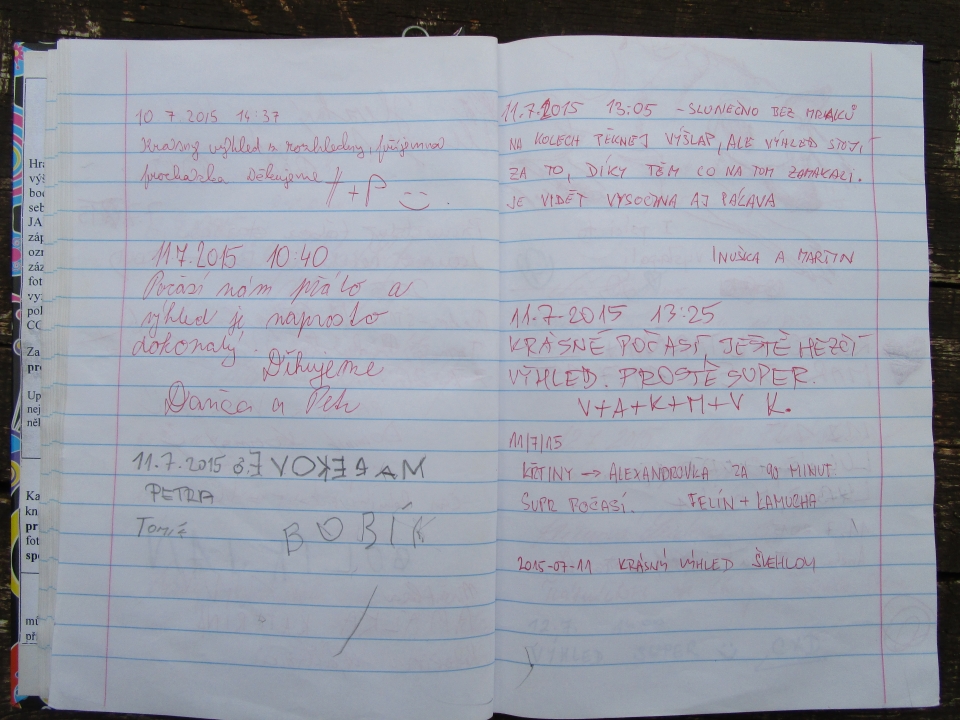 10 7 2015 14:37
Krásný výhled z rozhledny, příjemná
procházka Děkujeme H+P
11.7.2015 10:40
Počasí nám přálo a
výhled je naprosto
dokonalý.
Děkujeme
Danča a Petr
11.7.2015
PETRA
Tomáš BOBÍK
11.7.2015 13:05 - SLUNEČNO BEZ MRAKŮ
NA KOLECH PĚKNEJ VÝŠLAP, ALE VÝHLED STOJÍ
ZA TO, DÍKY TĚM CO NA TOM ZAMAKALI.
JE VIDĚT VYSOČINA AJ PÁLAVA
INUŠKA A MARTIN
11.7-2015 13:25
KRÁSNÉ POČASÍ, JEŠTĚ HEZČÍ
VÝHLED. PROSTĚ SUPER.
V+A+K+M+V K.
11/7/15
KŘTINY → ALEXANDROVKA ZA 90 MINUT
SUPR POČASÍ. FELÍN + LAMUCHA
2015-07-11 KRÁSNÝ VÝHLED ŠVEHLOVI
Hra
výš
bod
seb
JA
záp
ozn
záz
fot
vy
pol
CC
Za
pro
Up
nej
něl
Ka
kn
pr
fot
spe
mů
při